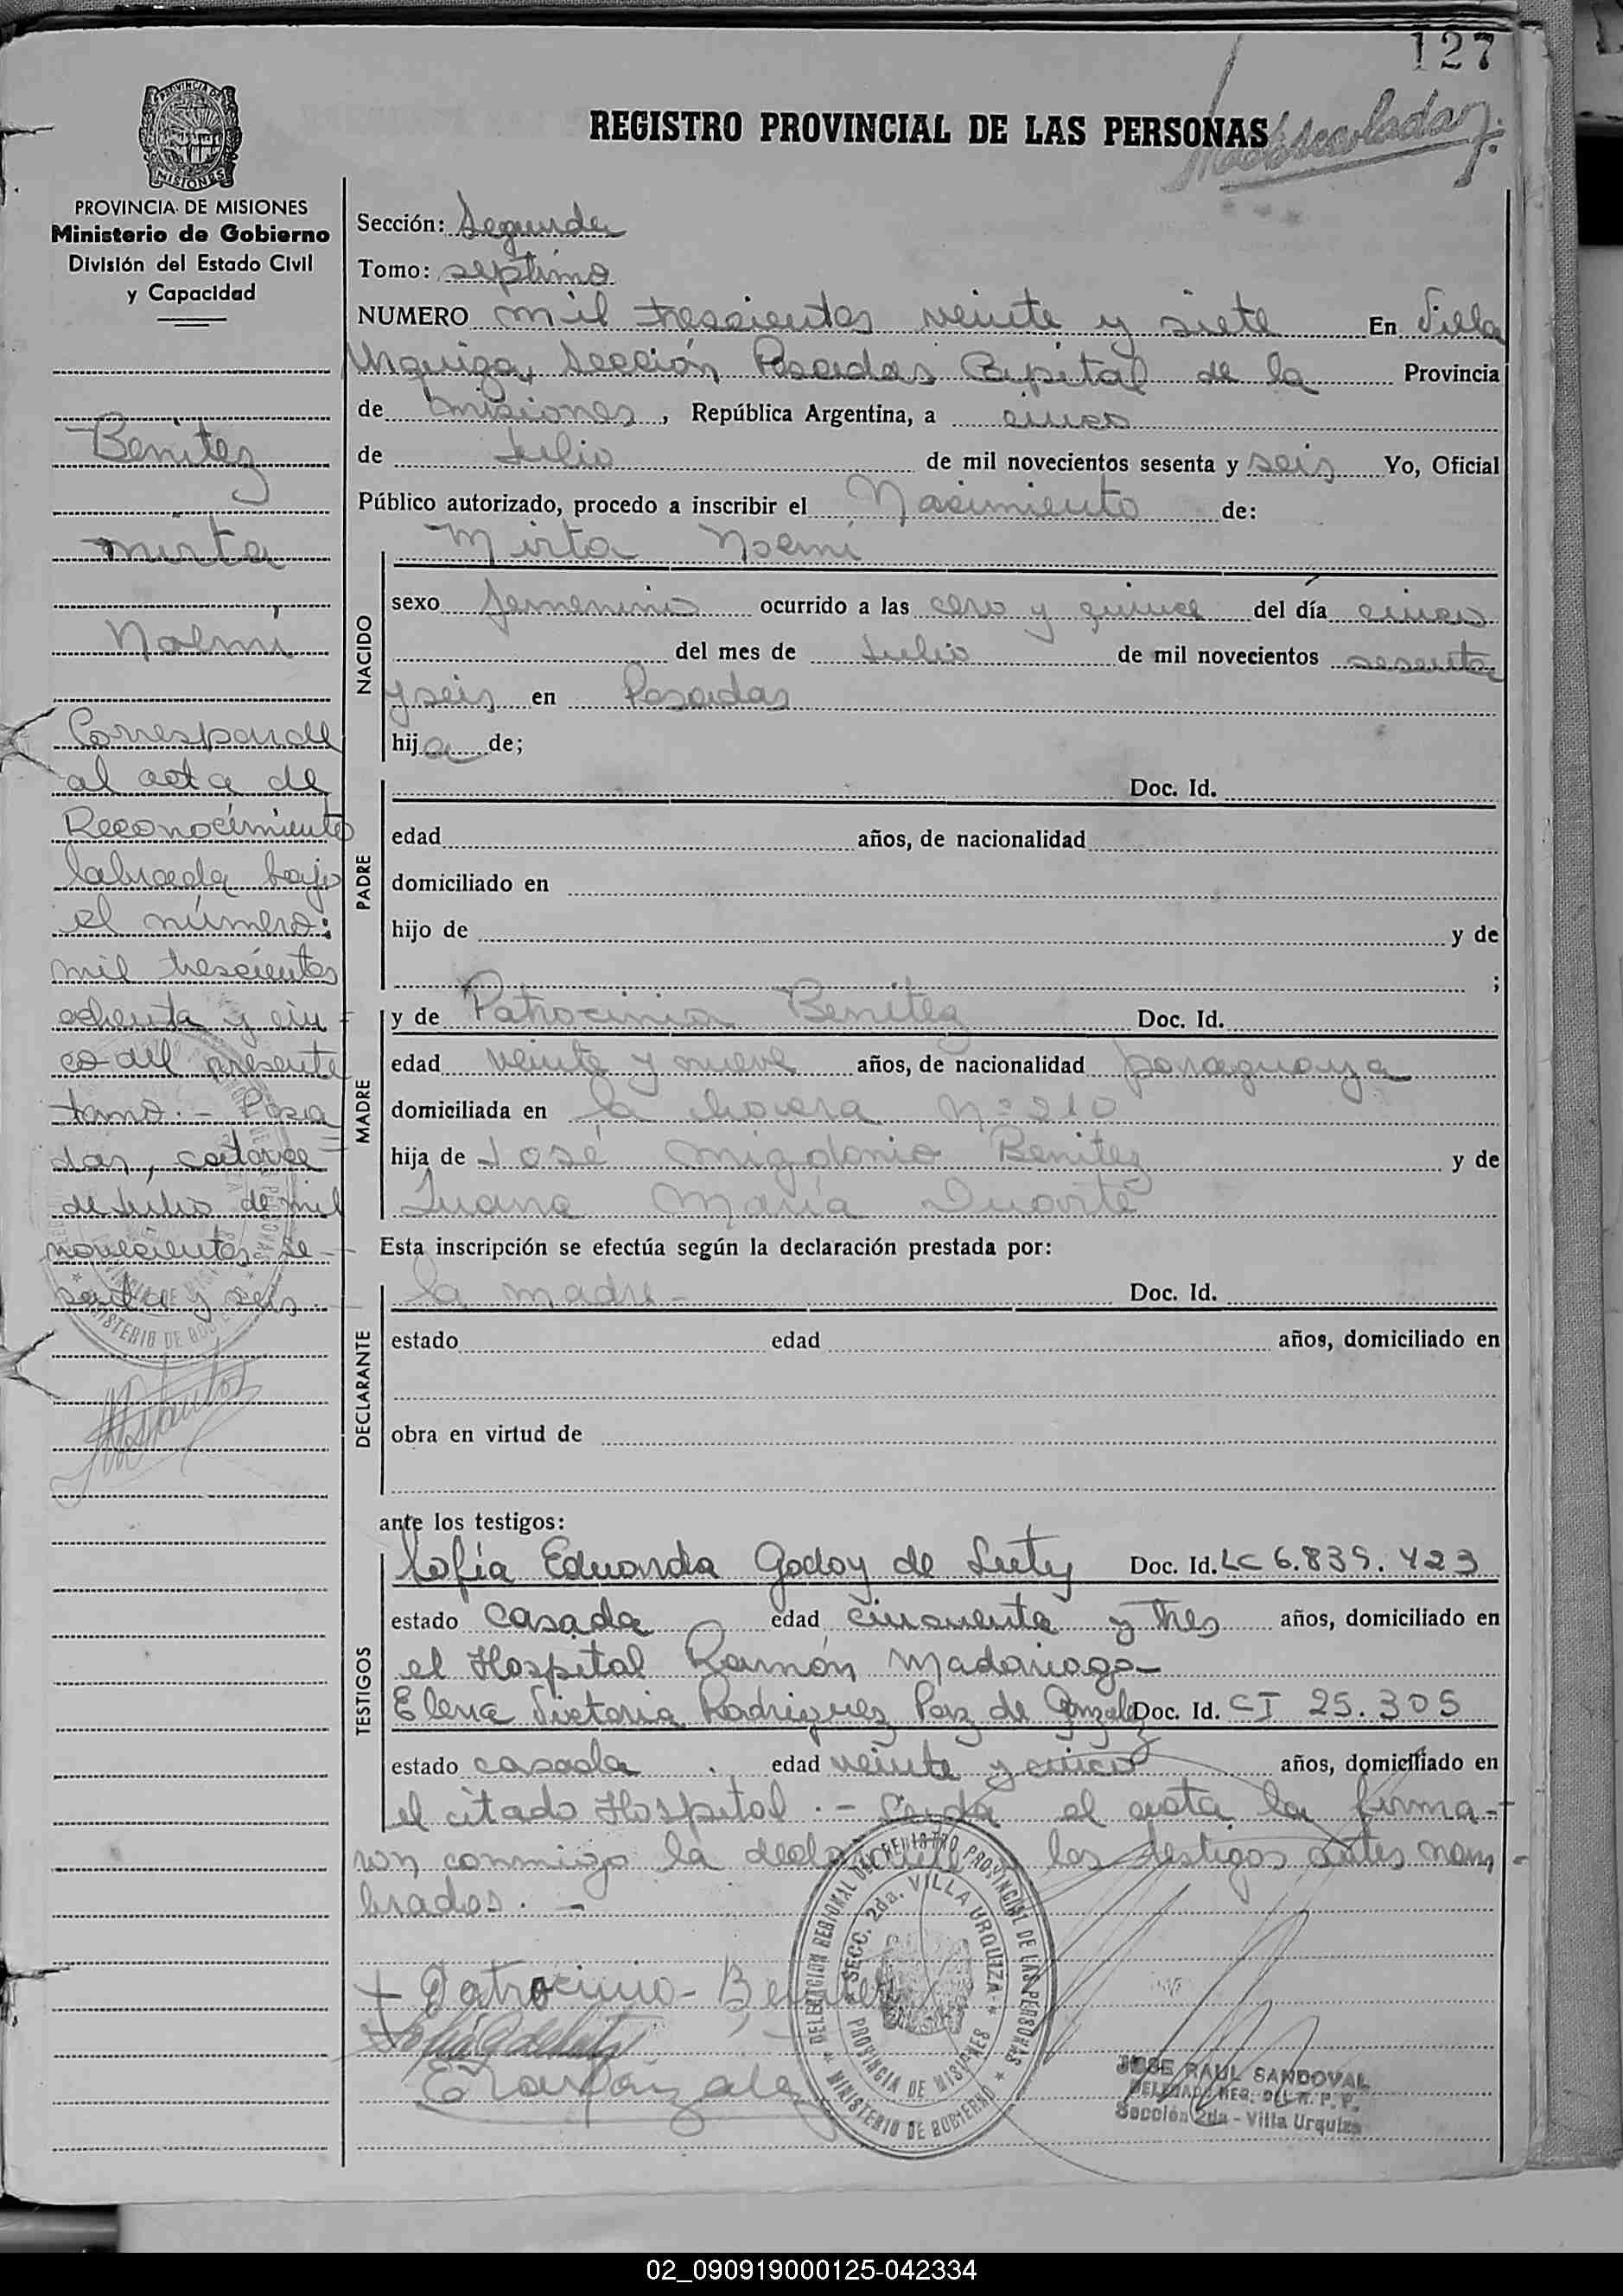 127
REGISTRO PROVINCIAL DE LAS PERSONAS
PROVINCIA DE MISIONES
Ministerio de Gobierno
División del Estado Civil
y Capacidad
Benitez
Mirta
Noemí
Corresponde
al acta de
Reconocimiento
labrada bajo
el número:
mil trescientos
ochenta y cin
co del presente
tomo.- Posa
das, catorce
de Julio de mil
novecientos se-
senta y seis.-
Sección: Segunda
Tomo: septimo
NUMERO mil trescientos veinte y siete En Villa
Urquiza, Sección Posadas Capital de la Provincia
de Misiones, República Argentina, a cinco
de Julio de mil novecientos sesenta y seis Yo, Oficial
Público autorizado, procedo a inscribir el Nacimiento de:
NACIDO
Mirta Noemí
sexo femenino ocurrido a las cero y quince del día cinco
del mes de Julio de mil novecientos sesenta
y seis en Posadas
hija de;
PADRE
Doc. Id.
edad años, de nacionalidad
domiciliado en
hijo de y de
;
MADRE
y de Patrocinia Benitez Doc. Id.
edad veinte y nueve años, de nacionalidad paraguaya
domiciliada en la chacra Nº 210
hija de José Migdonio Benitez y de
Juana María Duarte
Esta inscripción se efectúa según la declaración prestada por:
DECLARANTE
la madre - Doc. Id.
estado edad años, domiciliado en
obra en virtud de
ante los testigos:
TESTIGOS
Sofía Eduarda Godoy de Doc. Id. LC 6.839.423
estado casada edad cincuenta y tres años, domiciliado en
el Hospital Ramón Madariaga-
Elena Victoria Rodriguez Paz de Gonzalez Doc. Id. CI 25.305
estado casada edad veinte y cinco años, domiciliado en
el citado Hospital.- Leída el acta la firma-
ron conmigo la declarante y los testigos antes nom-
brados.-
+ Patrocinia - Benitez
DELEGACION REGIONAL DEL REGISTRO PROVINCIAL DE LAS PERSONAS
SECC. 2da. VILLA URQUIZA
PROVINCIA DE MISIONES
MINISTERIO DE GOBIERNO
JOSE RAUL SANDOVAL
DELEGADO REG. DEL R. P. P.
Sección 2da - Villa Urquiza
02_090919000125-042334